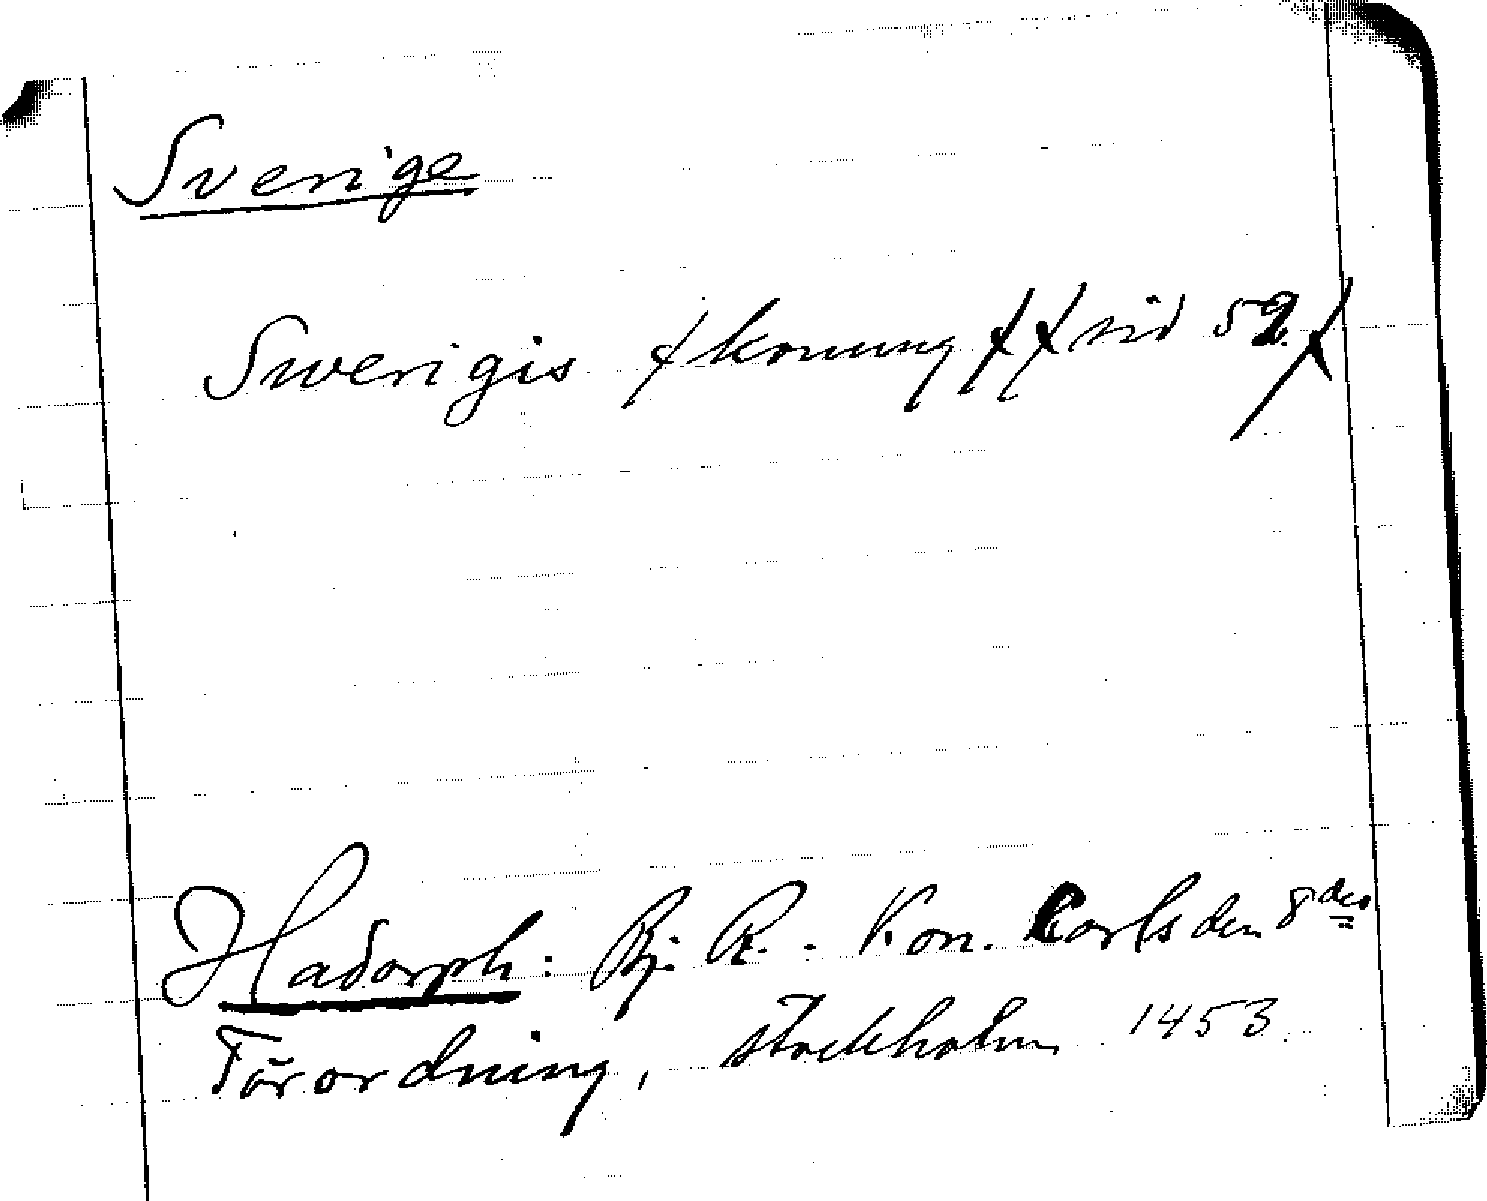 Sverige
Swerigis /konung // sid 52/
Hadorph: Bj. R. - Kon. Carls den 8des
Förordning, Stockholm 1453